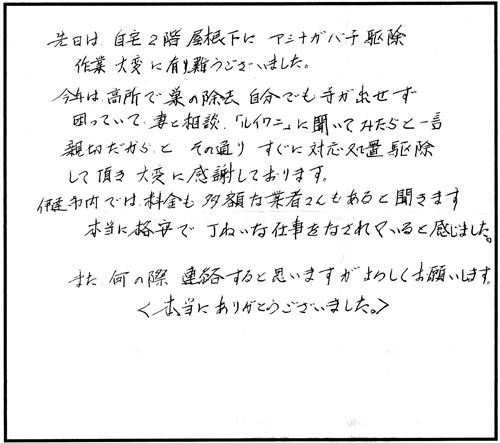 先日は、自宅2階屋根下に アシナガバチ駆除
作業 大変に有り難うございました。
今年は、高所で巣の除去 自分でも手が出せず
困っていて、妻と相談、「ルイワニ」に聞いてみたらと一言
親切だから、と その通り すぐに対応処置 駆除
して頂き 大変に感謝しております。
伊達市内では、料金も 多額な業者さんもあると聞きます
本当に格安で 丁ねいな仕事をなされていると感じました。
また 何の際 連絡すると思いますが よろしくお願いします。
<本当にありがとうございました。>